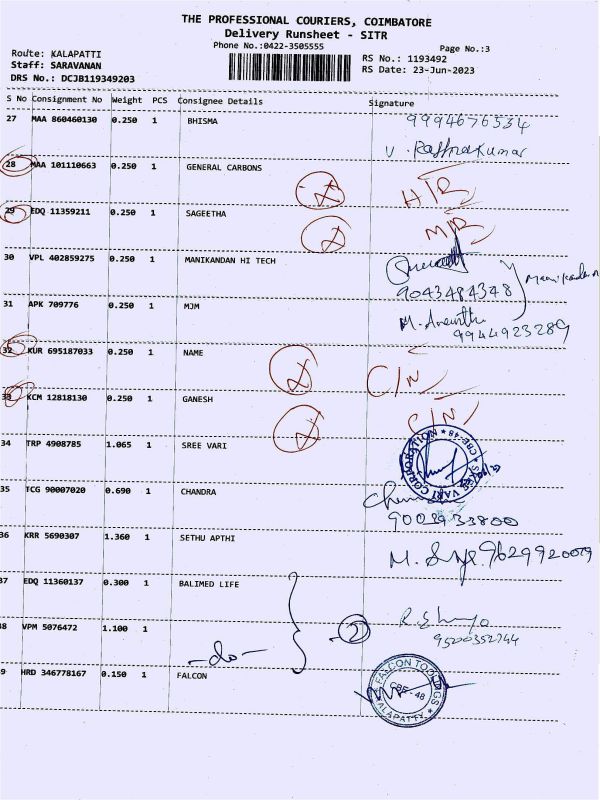 THE PROFESSIONAL COURIERS, COIMBATORE
Delivery Runsheet - SITR
Phone No.:0422-3505555
Page No.:3
Route: KALAPATTI
Staff: SARAVANAN
DRS No.: DCJB119349203
RS No.: 1193492
RS Date: 23-Jun-2023
S No Consignment No Weight PCS Consignee Details Signature
27 MAA 860460130 0.250 1 BHISMA 9994676534
28 MAA 101110663 0.250 1 GENERAL CARBONS
29 EDQ 11359211 0.250 1 SAGEETHA
30 VPL 402859275 0.250 1 MANIKANDAN HI TECH
9043484348
31 APK 709776 0.250 1 MJM
9944923289
32 KUR 695187033 0.250 1 NAME C/N
33 KCM 12818130 0.250 1 GANESH C/N
34 TRP 4908785 1.065 1 SREE VARI
SREE VARI CORPORATION * CBE-48 *
35 TCG 90007020 0.690 1 CHANDRA
36 KRR 5690307 1.360 1 SETHU APTHI
37 EDQ 11360137 0.300 1 BALIMED LIFE
2
38 VPM 5076472 1.100 1
9500352744
-do-
39 HRD 346778167 0.150 1 FALCON
FALCON TOOLINGS
CBE - 48
KALAPATTY